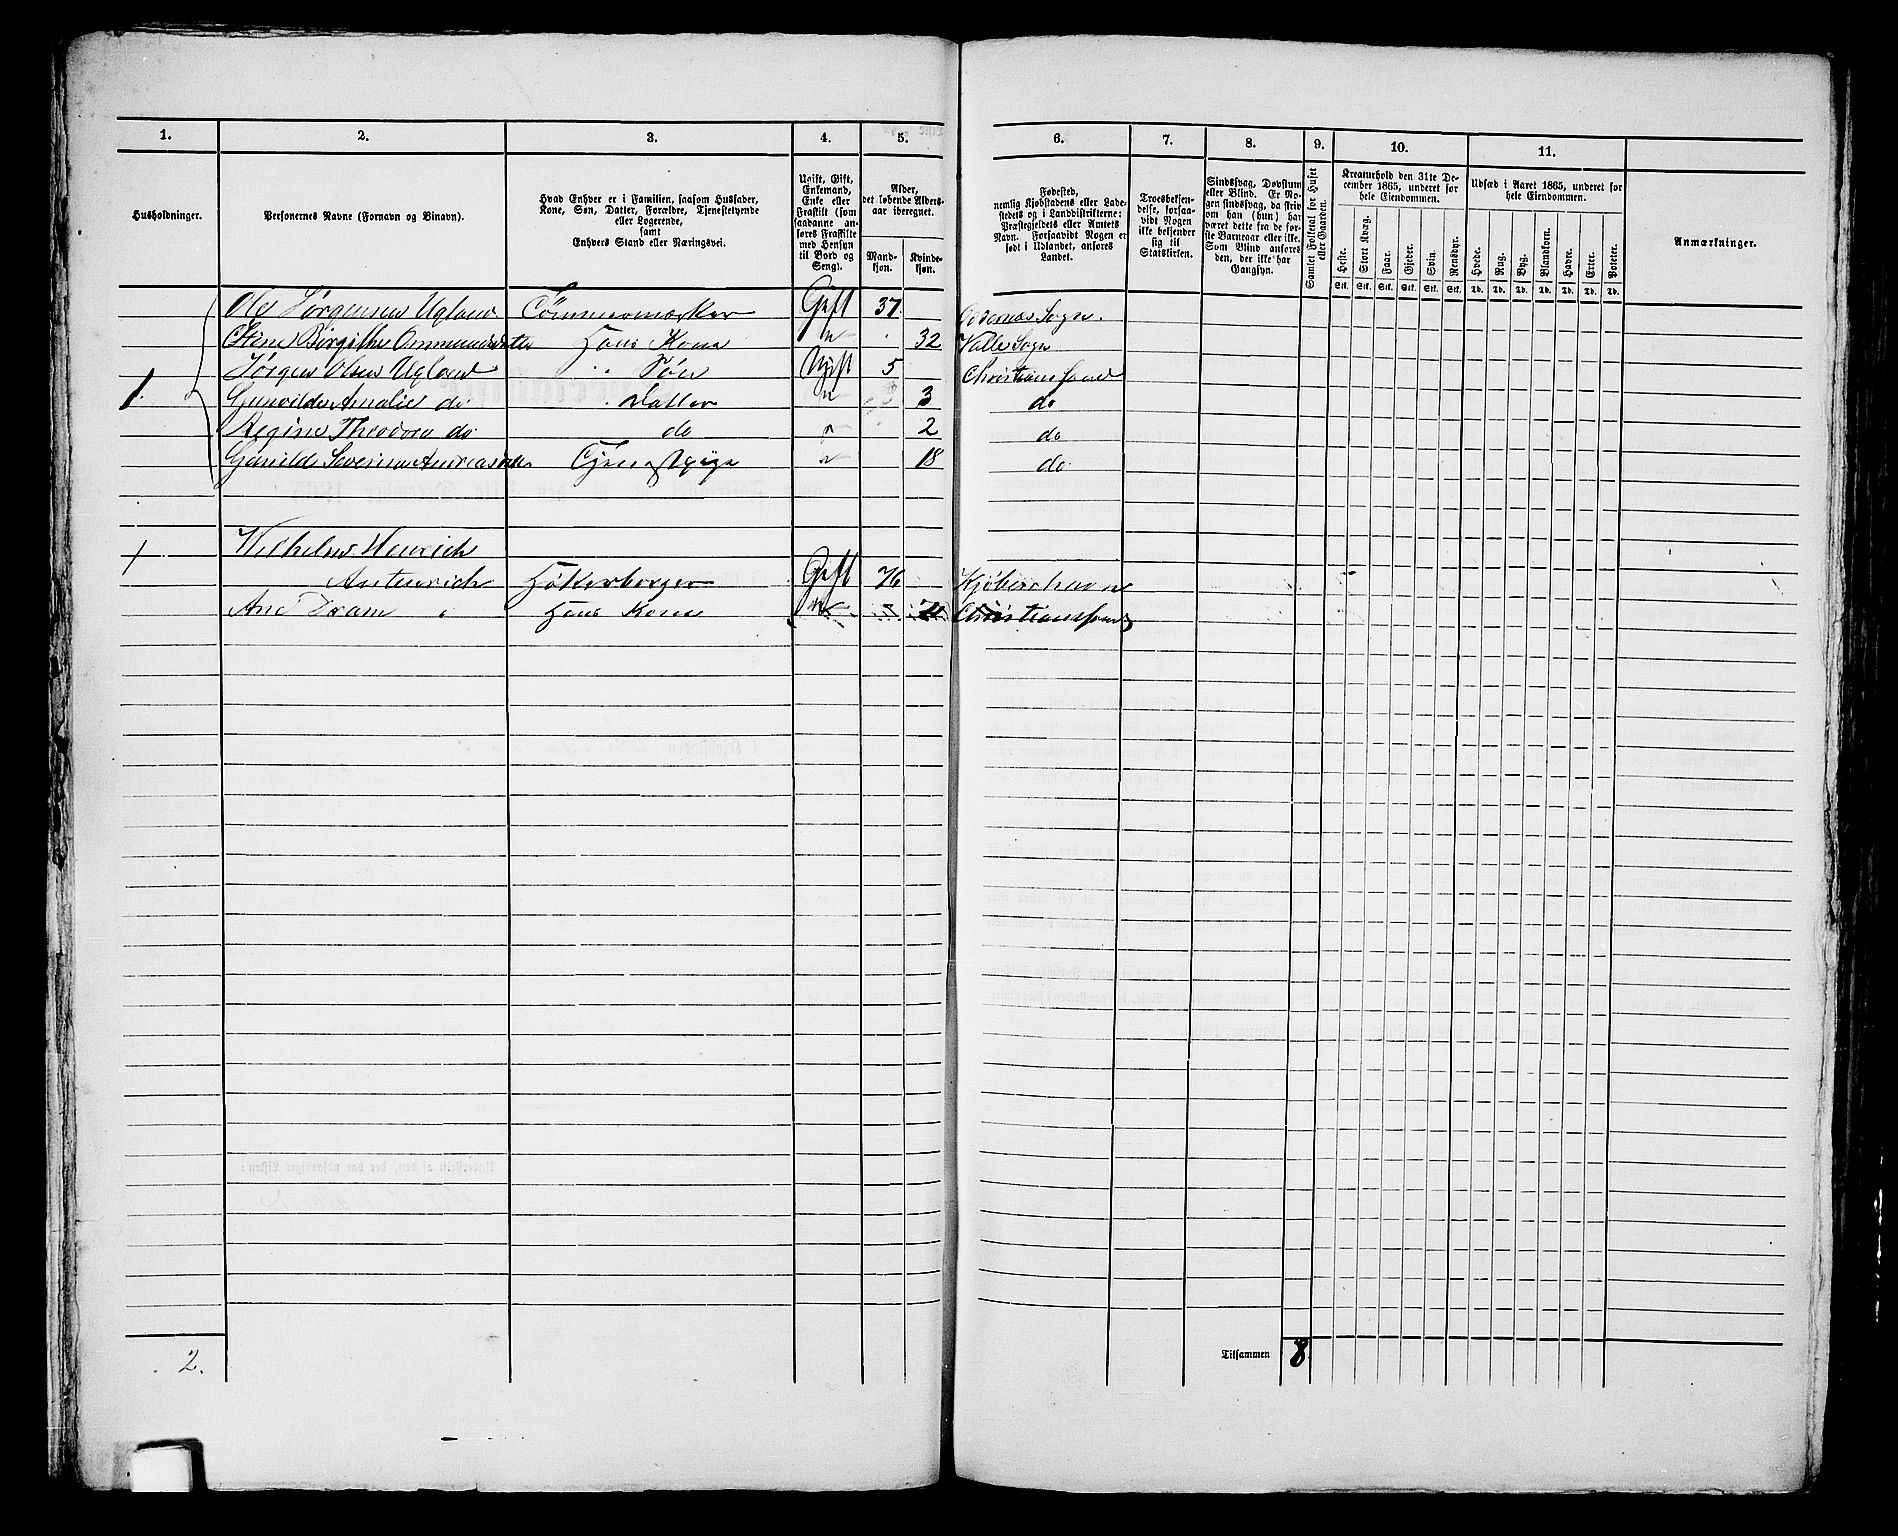 1. 2. 3. 4. 5. 6. 7. 8. 9. 10. 11.
Husholdninger.
Personernes Navne (Fornavn og Binavn).
Hvad Enhver er i Familien, saasom Husfader,
Kone, Søn, Datter, Forældre, Tjenestetyende
eller Logerende,
samt
Enhvers Stand eller Næringsvei.
Ugift, Gift,
Enkemand,
Enke eller
Fraskilt (som
saadanne an-
føres Fraskilte
med Hensyn
til Bord og
Seng).
Alder,
det løbende Alders-
aar iberegnet.
Mand-
kjøn.
Kvinde-
kjøn.
Fødested,
nemlig Kjøbstadens eller Lade-
stedets og i Landdistrikterne:
Præstegjeldets eller Amtets
Navn. Forsaavidt Nogen er
født i Udlandet, anføres
Landet.
Troesbekjen-
delse, forsaa-
vidt Nogen
ikke bekjender
sig til
Statskirken.
Sindssvag, Døvstum
eller Blind. Er No-
gen sindssvag, da skriv
om han (hun) har
været dette fra de før-
ste Barneaar eller ikke.
Som Blind anføres
den, der ikke har
Gangsyn.
Samlet Folketal for Huset
eller Gaarden.
Kreaturhold den 31te De-
cember 1865, underet for
hele Eiendommen.
Heste. Stort Kvæg. Faar. Gjeder. Svin. Rensdyr.
Stk. Stk. Stk. Stk. Stk. Stk.
Udsæd i Aaret 1865, underet for
hele Eiendommen.
Hvede. Rug. Byg. Blandkorn. Havre. Erter. Poteter.
Td. Td. Td. Td. Td. Td. Td.
Anmærkninger.
Ole Jørgensen Ugland Tømmermærker Gift 37. Oddernæs Sogn.
Stine Birgithe Ommundsdatter Hans Kone " 32 Valle Sogn
Jørgen Olsen Ugland " Søn Ugift 5 Christianssand
1. Gunvilde Amalie do " Datter " 3 do
Regine Theodora do do " 2 do
Gunild Severine Andreasdatter Tjen. Pige " 18 do.
1 Wilhelm Henrich
Antenrich Høkerborger Gift 76 Kjøbenhavn
Ane Dram " Hans Kone " 71 Christianssand
2.
Tilsammen 8.